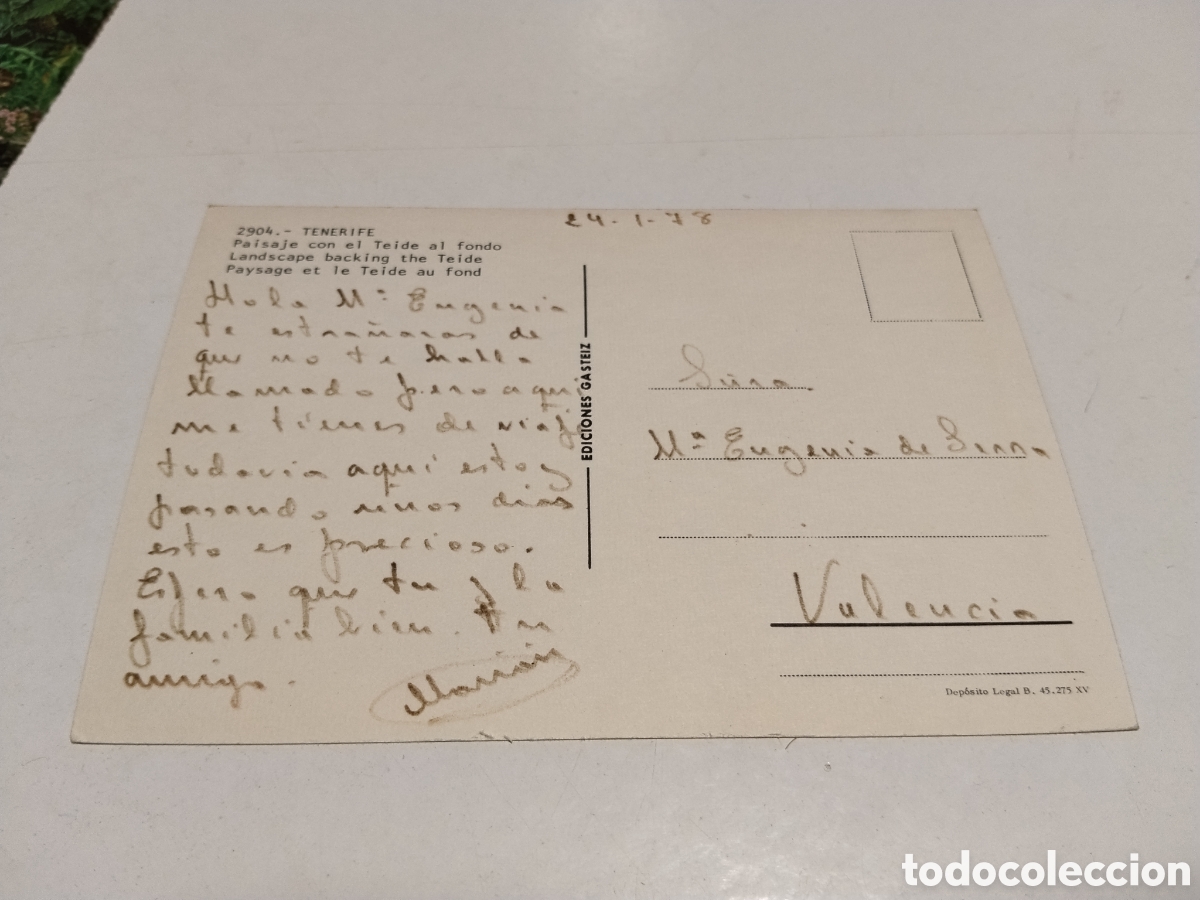 24-1-78
2904.- TENERIFE
Paisaje con el Teide al fondo
Landscape backing the Teide
Paysage et le Teide au fond
Hola Mª Eugenia
te estrañaras de
que no te halla
llamado pero aqui
me tienes de viaje
todavia aqui estoy
pasando unos dias
esto es precioso.
Espero que tu y la
familia bien. Tu
amigo.
EDICIONES GASTEIZ
Mª Eugenia de Serra
Valencia
Depósito Legal B. 45.275 XV
todocoleccion